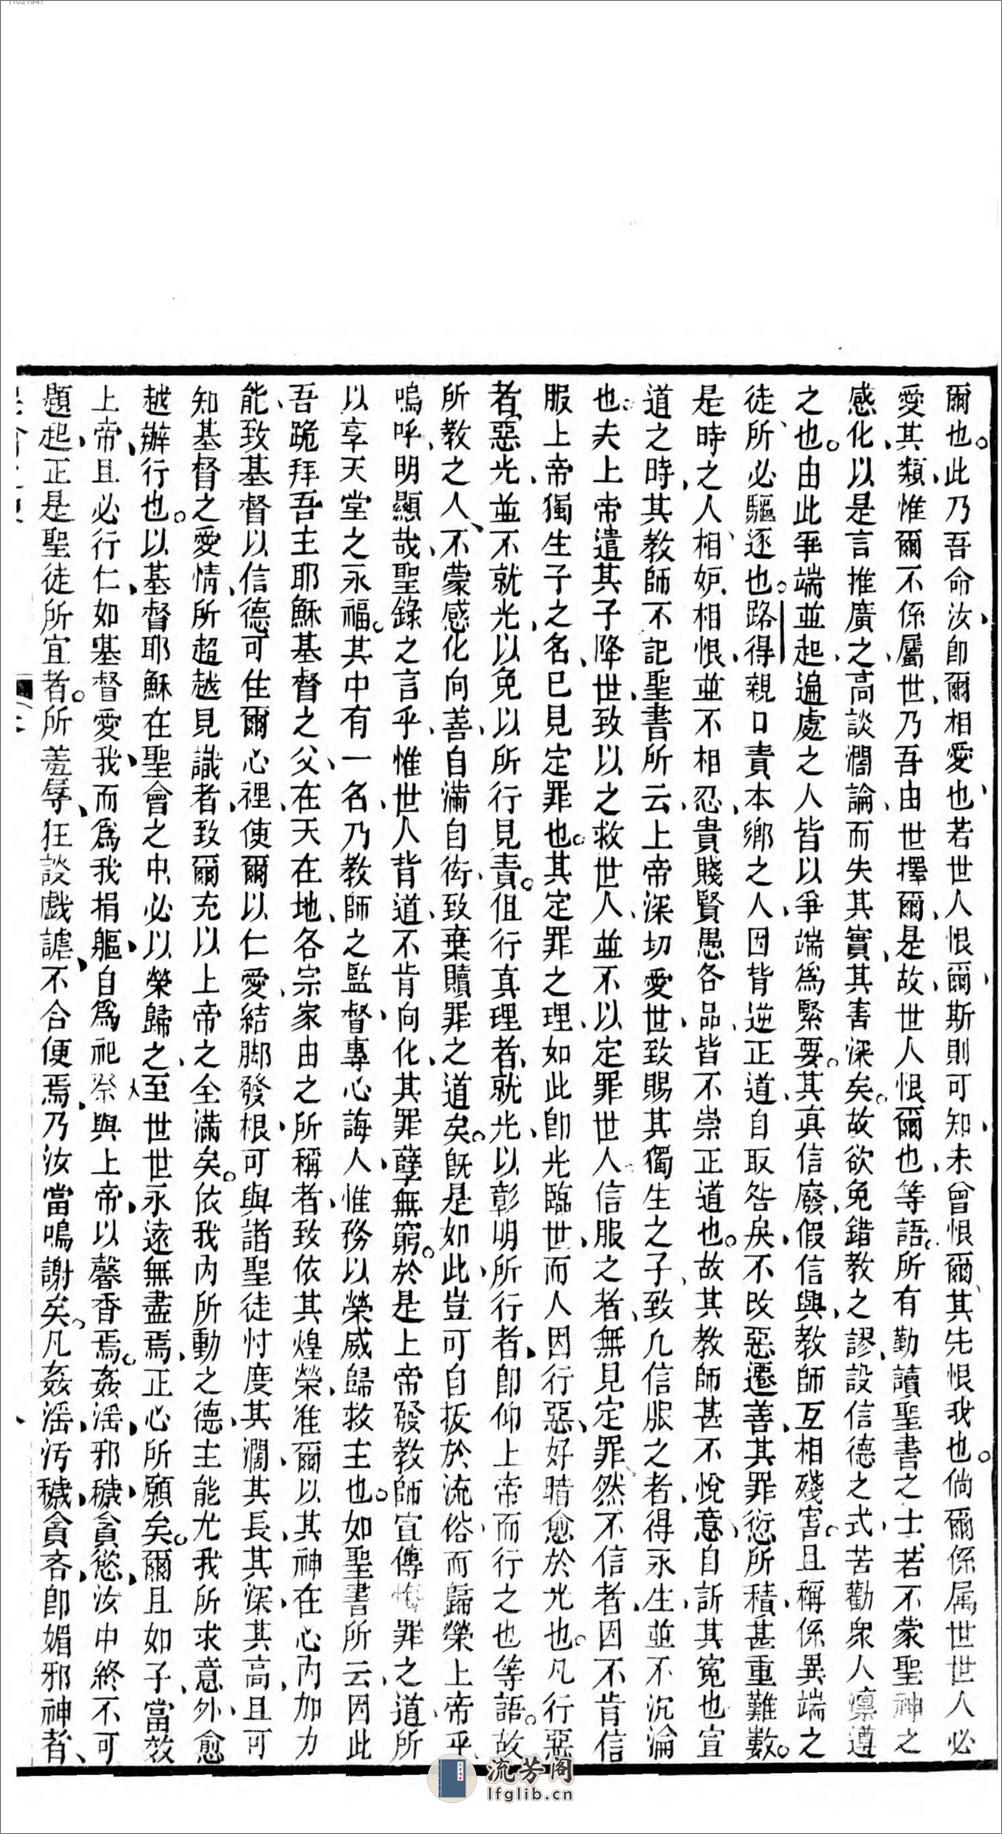 爾也。此乃吾命汝、卽爾相愛也若世人恨爾斯則可知未曾恨爾、其先恨我也。倘爾係属世、世人必
愛其類、惟爾不係屬世、乃吾由世擇爾、是故世人恨爾也、等語。所有勤讀聖書之士、若不蒙聖神之
感化、以是言推廣之、高談濶論、而失其實、其害深矣。故欲免錯教之謬、設信德之式、苦勸衆人、凛遵
之也。由此爭端並起、遍處之人、皆以爭端爲緊要。其真信廢、假信與、教師互相殘害。且稱係異端之
徒、所必驅逐也。路得親口責本鄉之人、因背逆正道、自取咎矣、不改惡遷善、其罪愆所積、甚重難數。
是時之人、相妒相恨、並不相忍、貴賤賢愚各品、皆不崇正道也。故其教師甚不悅意、自訴其寃也、宣
道之時、其教師不記聖書所云、上帝深切愛世、致賜其獨生之子、致凡信服之者、得永生、並不沉淪
也。夫上帝遣其子降世、致以之救世人、並不以定罪世人、信服之者、無見定罪、然不信者、因不肯信
服上帝獨生子之名、已見定罪也。其定罪之理、如此、卽光臨世、而人因行惡、好暗愈於光也。凡行惡
者、惡光、並不就光、以免以所行見責。但行真理者、就光、以彰明所行者、卽仰上帝而行之也、等語。故
所教之人、不蒙感化向善、自滿自衒、致棄贖罪之道矣。旣是如此、豈可自扳於流俗而歸榮上帝乎、
嗚呼、明顯哉、聖錄之言乎、惟世人背道不肯向化、其罪孽無窮。於是上帝發教師、宣傳悔罪之道、所
以享天堂之永福。其中有一名、乃教師之監督、專心誨人、惟務以榮威歸救主也。如聖書所云、因此
吾跪拜吾主耶穌基督之父、在天在地、各宗家由之所稱者、致依其煌榮、准爾以其神在心內加力
能致基督以信德可住爾心裡、使爾以仁愛結脚發根、可與諸聖徒忖度其濶其長其深其高、且可
知基督之愛情、所超越見識者、致爾充以上帝之全滿矣。依我內所動之德、主能尤我所求意外、愈
越辦行也。以基督耶穌、在聖會之中、必以榮歸之、至世世永遠無盡焉、正心所願矣。爾且如子、當效
上帝、且必行仁、如基督愛我、而爲我捐軀、自爲祀祭、與上帝、以馨香焉。姦淫邪穢、貪慾、汝中終不可
題起、正是聖徒所宜者。所羞辱狂談戲謔、不合便焉、乃汝當鳴謝矣。凡姦淫汚穢、貪吝、卽媚邪神者、
流芳阁
lfglib.cn